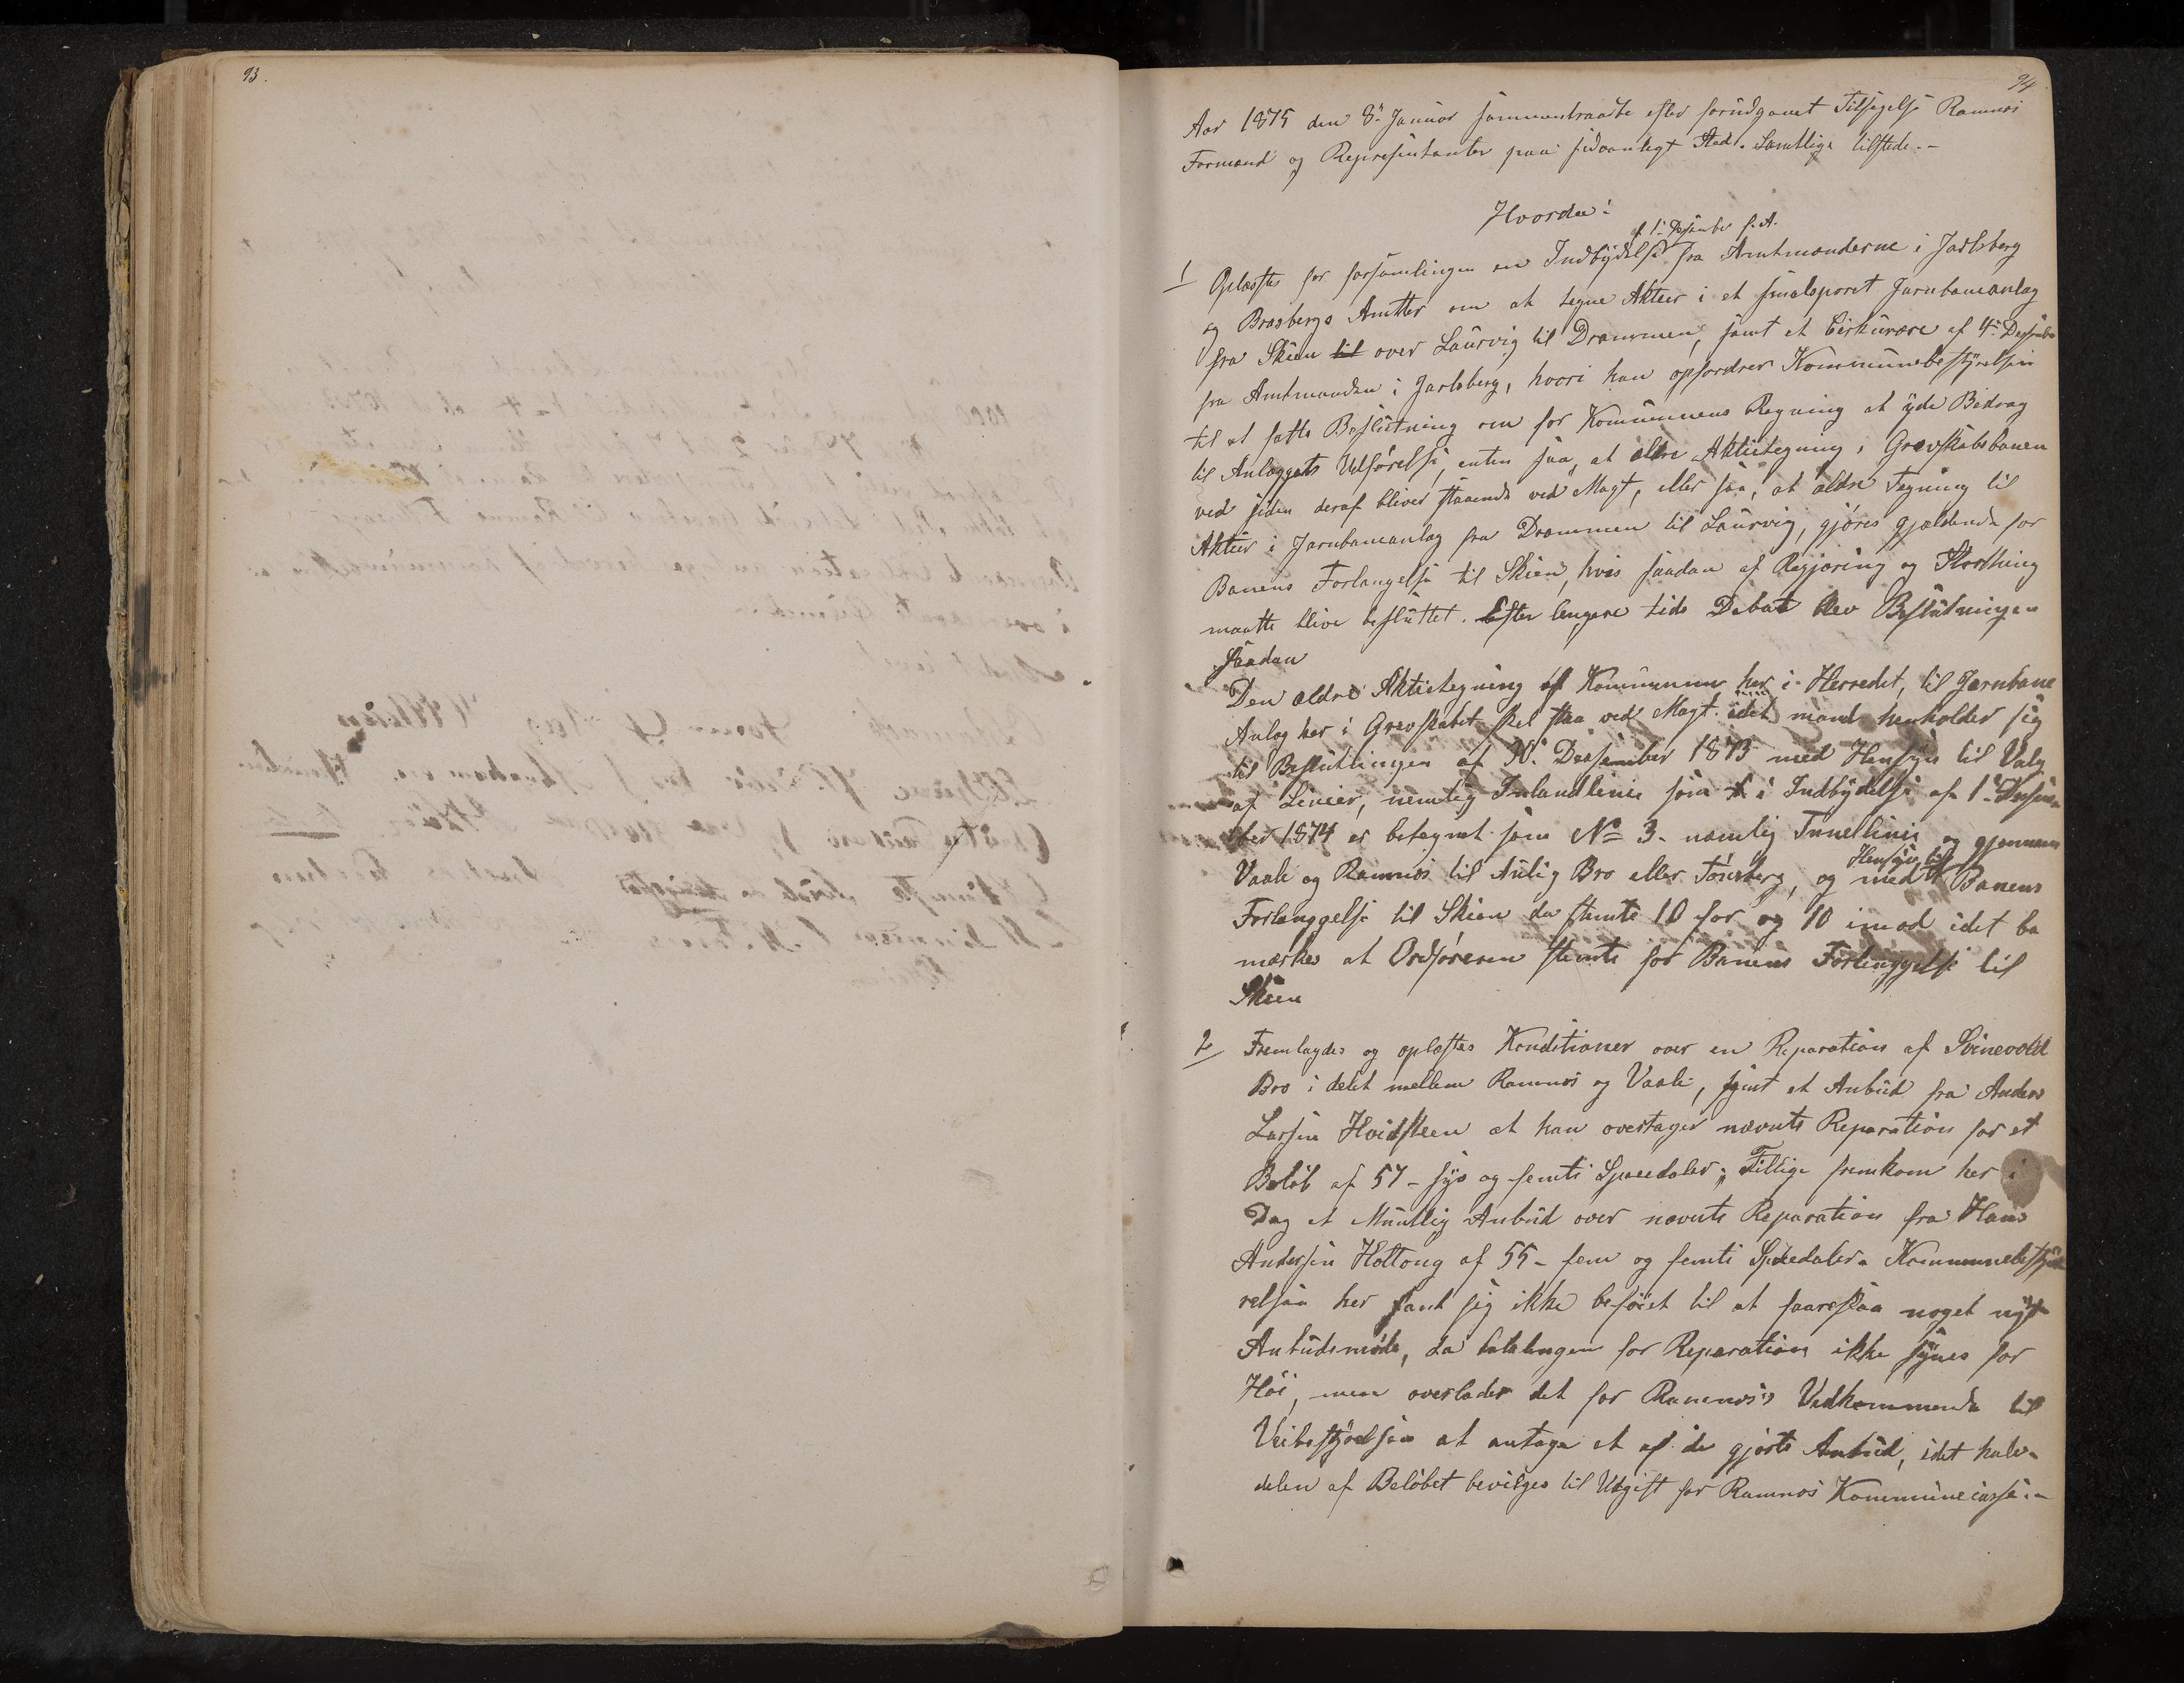 93.
94
Aar 1875 den 8de Januar sammentraadte efter forudgaaet Tilsigelse Ramnæs
Formænd og Representanter paa sedvanligt Sted. Samtlige tilstede.-
Hvorda:
af 1ste Desember f. A.
1 Oplæstes for forsamlingen en Indbydelse fra Amtmænderne i Jarlsberg
og Brasbergs Amtter om at tegne Aktier i et smalsporet Jernbaneanlæg
fra Skien til over Laurvig til Drammen, samt et Cirkulære af 4de Desember
fra Amtmanden i Jarlsberg, hvori han opfordrer Kommunebestyrelsen
til at fatte Beslutning om for Kommunens Regning at yde Bidrag
til Anlæggets Udførelse, enten saa, at ældre Aktietegning i Grevskabsbanen
ved siden deraf bliver staaende ved Magt, eller saa, at ældre Tegning til
Aktier i Jernbaneanlæg fra Drammen til Laurvig, gjøres gjældende for
Banens Forlængelse til Skien, hvis saadan af Regjering og Storthing
maatte blive besluttet. Efter lengere tids Debat blev Beslutningen
saadan
Den ældre Aktietegning af Kommunen her i Herredet, til Jernbane
Anlæg her i Grevskabet skal staa ved Magt. idet man henholder sig
til Beslutningen af 30. Desember 1873 med Hensyn til Valg
af Linier, nemlig Inlandlinie som i Indbydelse af 1ste Desem-
ber 1874 er betegnet som No 3. nemlig Innellinie og gjennem
Vaale og Ramnæs til Aulig Bro eller Tønsberg, og med Hensyn til Banens
Forlenggelse til Skien da stemte 10 for og 10 imod idet be
mærkes at Ordføreren stemte for Banens Forlenggelse til
Skien
2 Fremlagdes og oplæstes Konditioner over en Reparation af Svinevold
Bro i delet mellem Ramnæs og Vaale, samt et Anbud fra Anders
Larsen Hvidsteen at han overtager nævnte Reparation for et
Beløb af 57 - syv og femti Speciedaler; Tillige fremkom her i
Dag et Muntlig Anbud over nævnte Reparation fra Hans
Andersen Holtong af 55 - fem og femti Speciedaler. Kommunebesty
relsen her fant sig ikke beføiet til at foreslaa noget nyt
Anbudsmøde, da betalingen for Reparation ikke synes for
Høi, men overlader det for Ramnæs's Vedkommende til
Veibestyrelsen at antage et af de gjorte Anbud, idet halv-
delen af Beløbet bevilges til Udgift for Ramnæs Kommunecasse.-